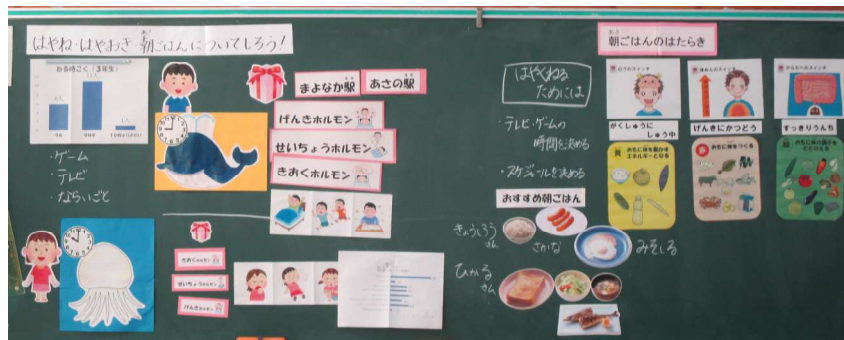 はやね・はやおき・朝ごはんについてしろう!
ねる時こく(3年生)
・ゲーム
・テレビ
・ならいごと
まよなか駅
あさの駅
げんきホルモン
せいちょうホルモン
きおくホルモン
きおくホルモン
せいちょうホルモン
げんきホルモン
はやくねる
ためには
・テレビ・ゲームの
時間を決める
・スケジュールを決める
おすすめ朝ごはん
きょうしろう
さん
さかな
みそしる
ひかる
さん
朝ごはんのはたらき
がくしゅうに
しゅう中
げんきにかつどう
すっきりうんち
黄
おもに体を動かす
エネルギーとなる
赤
おもに体をつくる
緑
おもに体の調子を
ととのえる